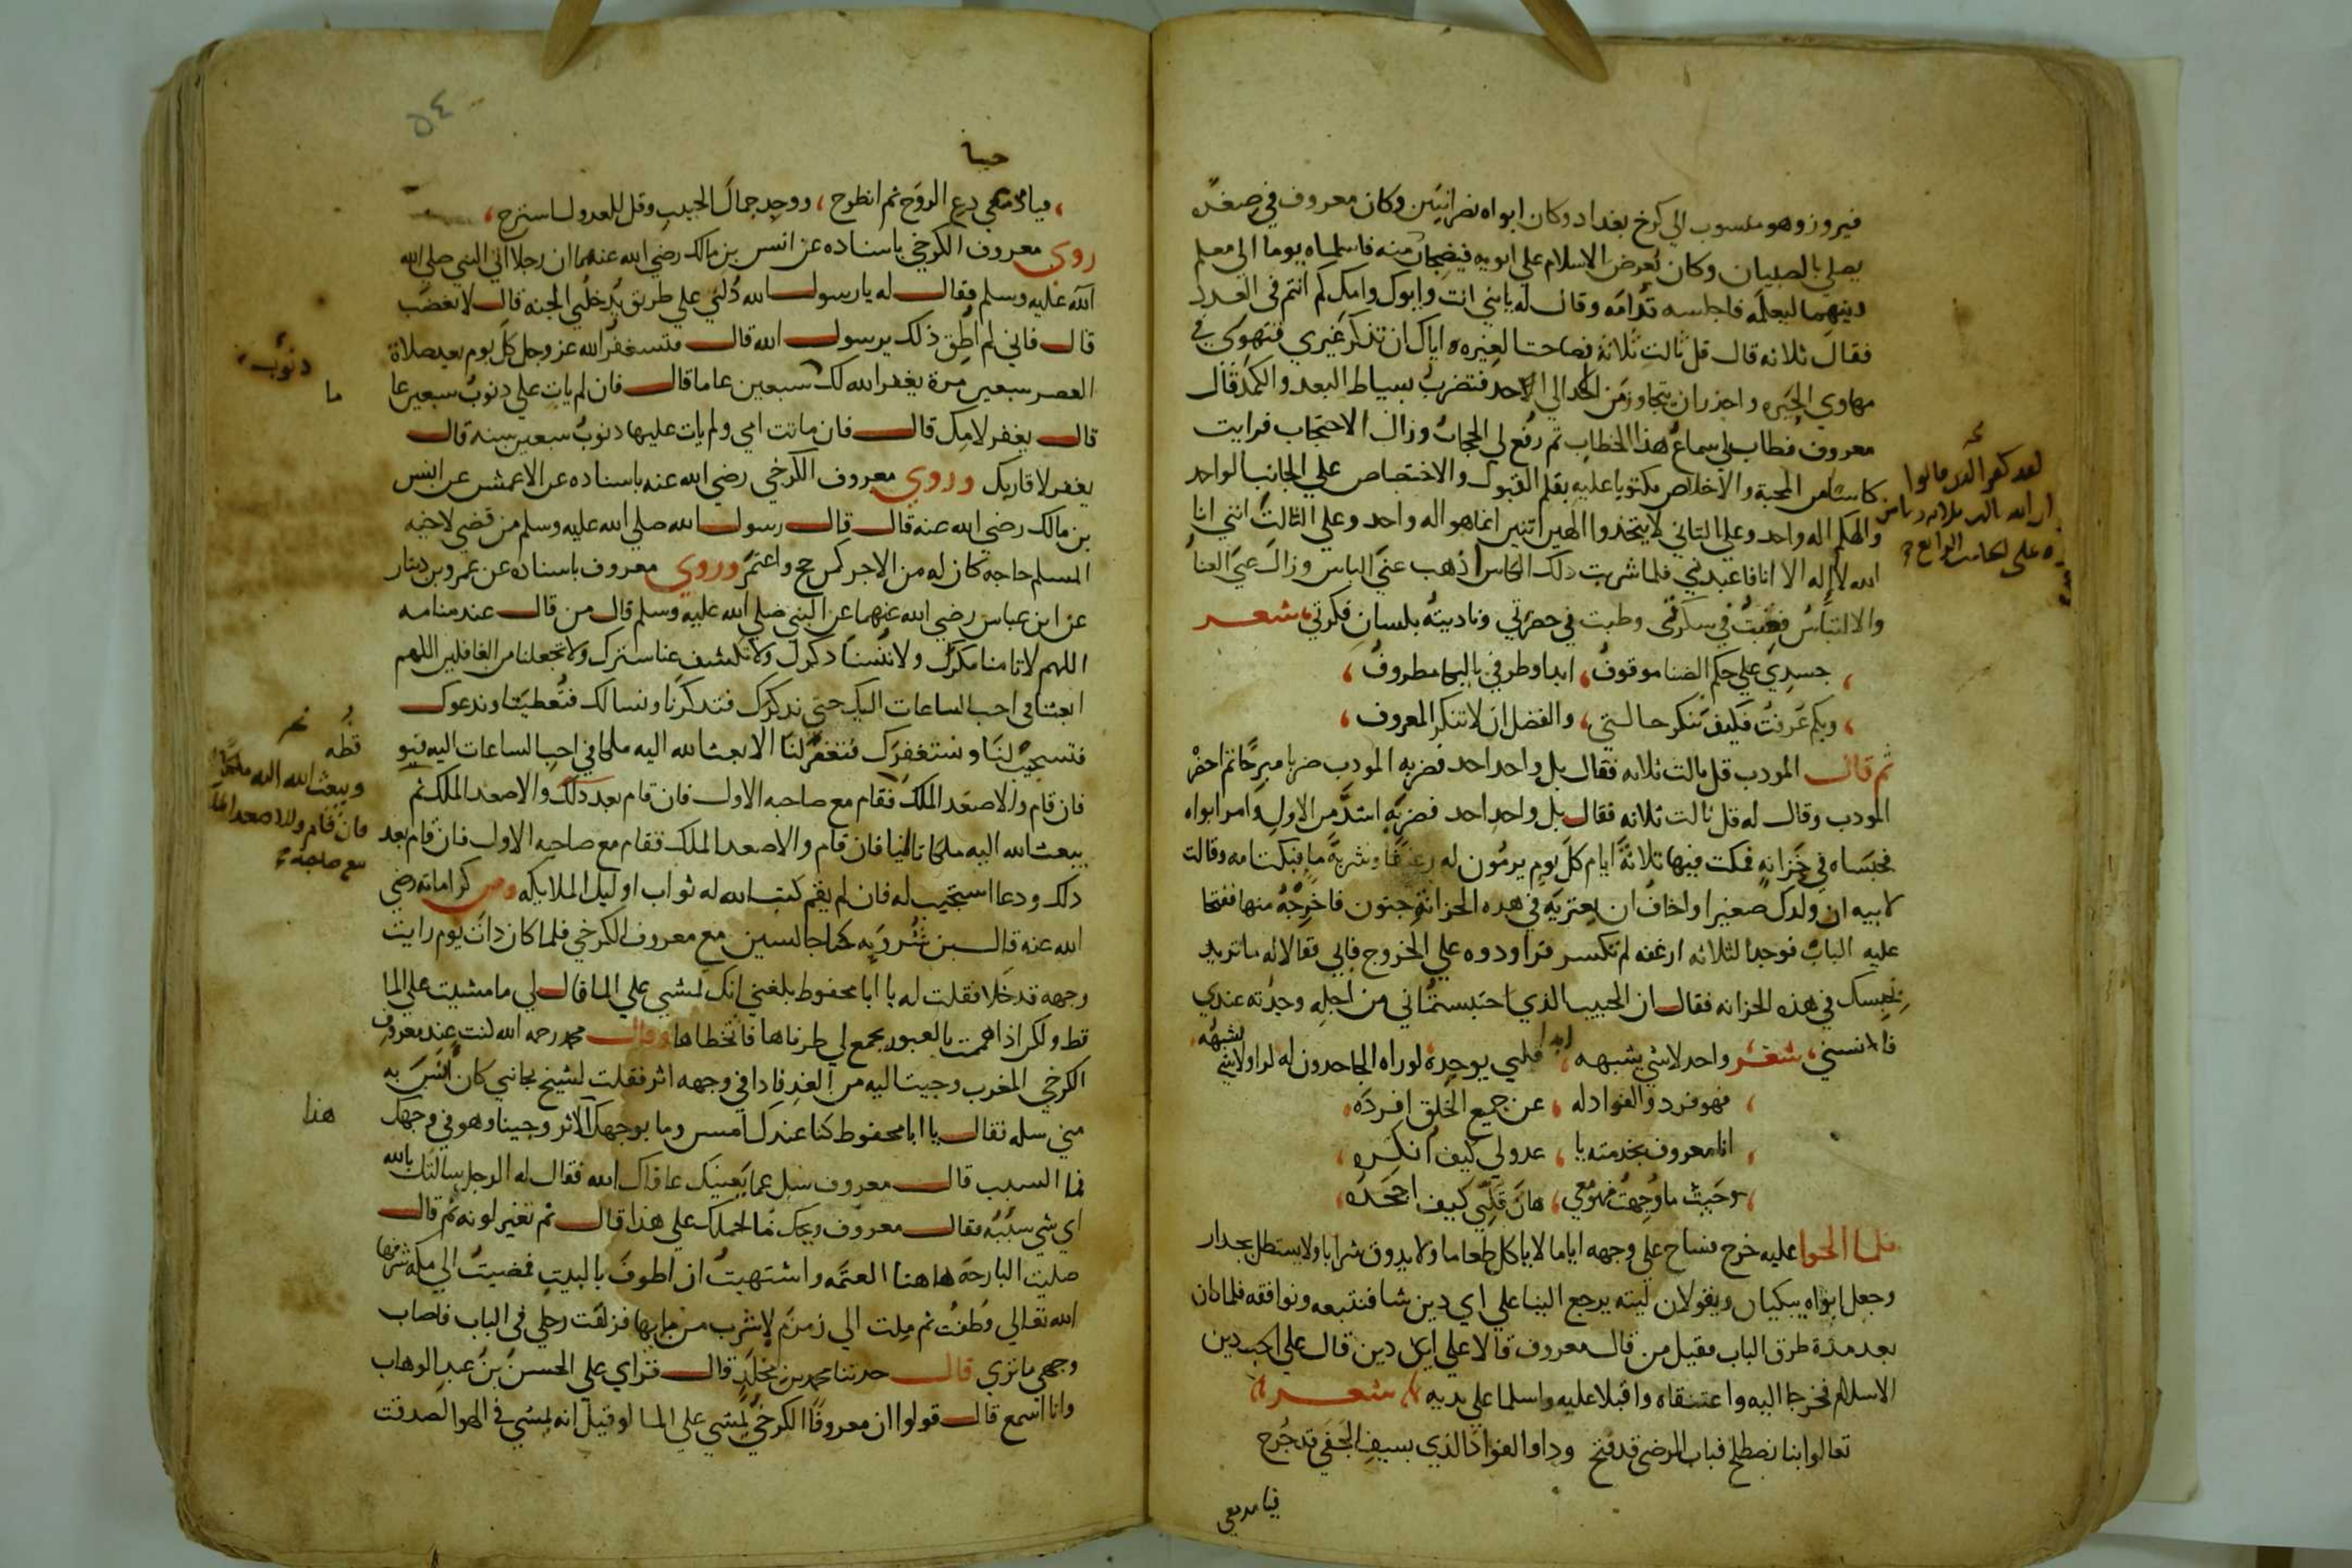 فيروز وهو منسوب الي كرخ بغداد وكان ابواه نصرانيين وكان معروف في صغره
يصلي بالصبيان وكان يعرض الاسلام علي ابويه فيضجان منه فاسلماه يوما الي معلم
دينهما ليعلمه فاجلسه قدامه وقال له يابني انت وابوك وامك كم انتم في العدد
فقال ثلاثه قال قل ثالث ثلاثة فصاحت الغيره اياك ان تذكر غيري فتهوي في
مهاوي الحيره واحذر ان تتجاوز من الاحد الي الاحد فتضرب بسياط البعد والكمد قال
معروف فطاب لي سماع هذا الخطاب ثم رفع لي الحجاب وزال الاحتجاب فرايت
كاسا من المحبة والاخلاص مكتوبا عليه بقلم القبول والاختصاص علي الجانب الواحد
والهكم اله واحد وعلي الثاني لا يتخذوا الهين اثنين انما هو اله واحد وعلي الثالث انني انا
الله لا اله الا انا فاعبدني فلما شربت ذلك الكاس اذهب عني الباس وزال عني العنا
والالتباس فغبت في سكرتي وطبت في حضرتي وناديته بلسان فكرتي شعر
جسدي علي حكم الضنا موقوف ، ابدا وطرفي بالبكا مطروف ،
وبكم عرفت فكيف تنكر حالتي ، والفضل ان لا تنكر المعروف ،
ثم قال المودب قل ثالث ثلاثه فقال بل واحد احد فضربه المودب ضربا مبرحا ثم احضر
المودب وقال له قل ثالث ثلاثه فقال بل واحد احد فضربه اشد من الاول وامر ابواه
فحبساه في خزانه فمكث فيها ثلاثة ايام كل يوم يرمون له رغيفا وشربة ما فبكت امه وقالت
لابيه ان ولدك صغير واخاف ان يعتريه في هذه الخزانة جنون فاخرجه منها ففتحا
عليه الباب فوجدا الثلاثه ارغفه لم تكسر فراودوه علي الخروج فابي فقالا له ما تريد
بحبسك في هذه الخزانه فقال ان الحبيب الذي احتبستماني من اجله وجدته عندي
فانسني ، شعر واحد لا شي يشبهه ، قلبي يوحده لو راه الجاحدون له لراوا لا شي يشبهه
فهو فرد والفواد له ، عن جميع الخلق افرده
انا معروف بخدمته يا ، عدولي كيف انكره ،
وحيث ما وجهت فهو معي ، هان قلبي كيف اجحده ،
فلما الحوا عليه خرج فساح علي وجهه اياما لا ياكل طعاما ولا يدوق شرابا ولا يستظل بجدار
وجعل ابواه يبكيان ويقولان ليته يرجع الينا علي اي دين شا فنتبعه ونوافقه فلما كان
بعد مدة طرق الباب فقيل من قال معروف قالا علي اي دين قال علي احب دين
الاسلام فخرجا اليه واعتنقاه واقبلا عليه واسلما علي يديه شعر
تعالوا بنا نصطلح فباب الرضي قد فتح وداوا الفواد الذي بسيف الجفي قد جرح
فيا مدمعي
لقد كفر الدين قالوا
ان الله ثالث ثلاثه
علي الجانب الرابع
٥٤
حبيبا
فيا مدمعي دع الروح ثم انطرح ، ووحد جمال الحبيب وقل للعدول استرح ،
روي معروف الكرخي باسناده عن انس بن مالك رضي الله عنهما ان رجلا اتي النبي صلي الله
الله عليه وسلم فقال له يا رسول الله دلني علي طريق يدخلني الجنه قال لا تغضب
قال فاني لم اطق ذلك يرسول الله قال فتستغفر الله عز وجل كل يوم بعد صلاة
العصر سبعين مرة يغفر الله لك سبعين عاما قال فان لم يات علي دنوب سبعين عا
ما
دنوب
قال يغفر لامك قال فان ماتت امي ولم يات عليها دنوب سبعين سنه قال
يغفر لاقاربك وروي معروف الكرخي رضي الله عنه باسناده عن الاعمش عن انس
بن مالك رضي الله عنه قال قال رسول الله صلي الله عليه وسلم من قضي لاخيه
المسلم حاجه كان له من الاجر كمن حج واعتمر وروي معروف باسناده عن عمرو بن دينار
عن ابن عباس رضي الله عنهما عن النبي صلي الله عليه وسلم قال من قال عند منامه
اللهم لا تامنا مكرك ولا تنسنا ذكرك ولا تكشف عنا سترك ولا تجعلنا من الغافلين اللهم
ابعثنا في احب الساعات اليك حتي نذكرك فتذكرنا ونسالك فتعطينا وندعوك
فتستجيب لنا ونستغفرك فتغفر لنا الا بعث الله اليه ملكا في احب الساعات اليه فيو
قظه
فان قام والا صعد الملك فقام مع صاحبه الاول فان قام بعد ذلك والا صعد الملك ثم
ويبعث الله اليه ملكا
فان قام والا صعد الملك
مع صاحبه
يبعث الله اليه ملكا ثالثا فان قام والا صعد الملك فقام مع صاحبه الاول فان قام بعد
ذلك ودعا استجيب له فان لم يقم كتب الله له ثواب اوليك الملايكه ومن كراماته رضي
الله عنه قال بن شيرويه كنا جالسين مع معروف الكرخي فلما كان ذات يوم رايت
وجهه قد خلا فقلت له يا ابا محفوظ بلغني انك تمشي علي الما فقال لي ما مشيت علي الما
قط ولكن اذا هممت بالعبور يجمع لي طرفاها فاتخطاها وقال محمد رحمه الله كنت عند معروف
الكرخي المغرب وجيت اليه من الغد فاذا في وجهه اثر فقلت لشيخ بجانبي كان انس به
مني سله فقال يا ابا محفوظ كنا عندك امس وما بوجهك الاثر وجينا وهو في وجهك
هذا
فما السبب قال معروف سل عما يعنيك عافاك الله فقال له الرجل سالتك بالله
اي شي سببه فقال معروف ويحك ما حملك علي هذا قال ثم تغير لونه ثم قال
صليت البارحة هاهنا العتمه واشتهيت ان اطوف بالبيت فمضيت الي مكه شرفها
الله تعالي وطفت ثم ملت الي زمزم لاشرب من مايها فزلقت رجلي في الباب فاصاب
وجهي ما تري قال حدثنا محمد بن مخلد قال قراي علي الحسن بن عبد الوهاب
وانا اسمع قال قولوا ان معروفا الكرخي يمشي علي الما لو قيل انه يمشي في الهوا لصدقت